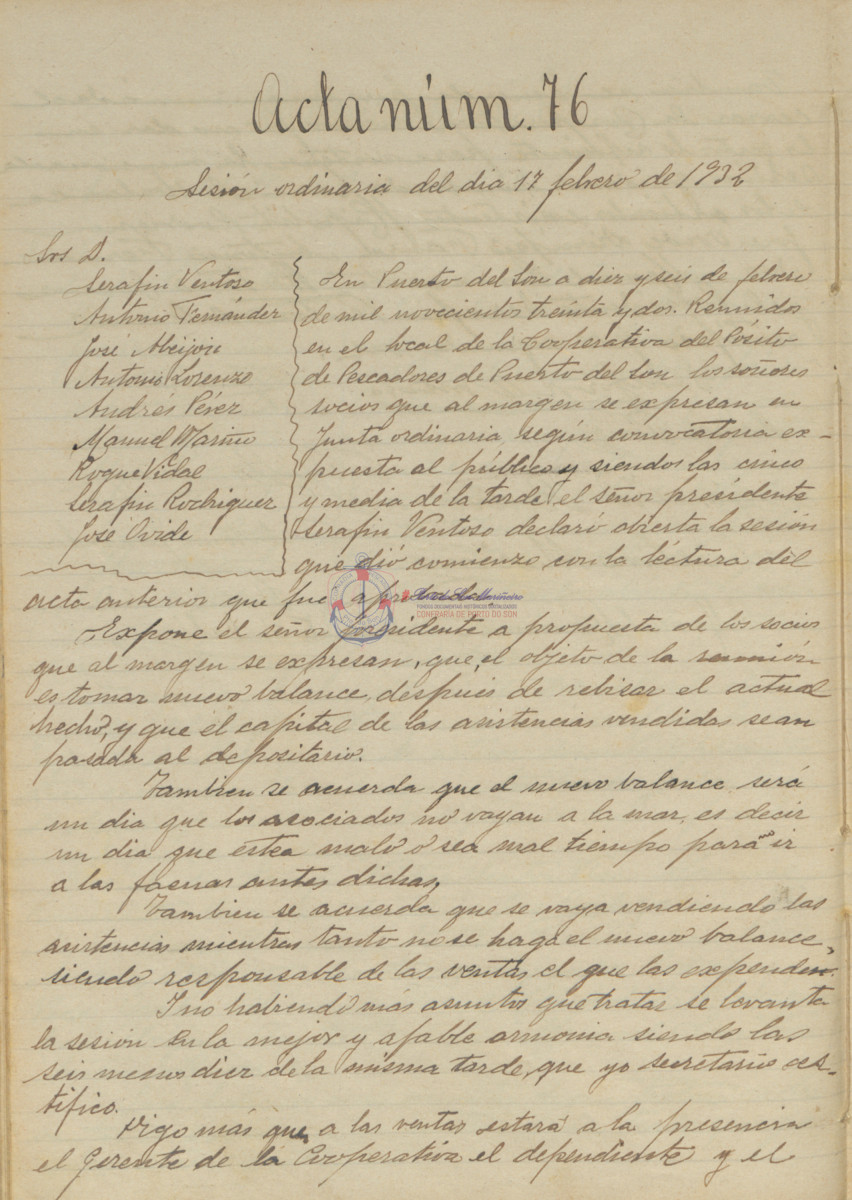 Acta núm. 76
Sesión ordinaria del dia 17 febrero de 1932
Srs D.
Serafin Ventoso
Antonio Fernánder
José Abeijon
Antonio Lorenzo
Andrés Pérez
Manuel Mariño
Roque Vidal
Serafin Rodriguez
José Ovide
En Puerto del Son a diez y seis de febrero
de mil novecientos treinta y dos. Reunidos
en el local de la Cooperativa del Pósito
de Pescadores de Puerto del Son los señores
socios que al margen se expresan en
Junta ordinaria, según convocatoria ex-
puesta al público y siendos las cinco
y media de la tarde el señor presidente
Serafin Ventoso declaró abierta la sesión
que dió comienzo con la léctura del
acta anterior que fue aprobada.
Expone el señor presidente a propuesta de los socios
que al margen se expresan, que, el objeto de la reunión
es tomar nuevo balance después de rebisar el actual
hecho, y que el capital de las asistencias vendidas sean
pasada al depositario.
Tambien se acuerda que el nuevo balance será
un dia que los asociados no vayan a la mar, es decir
un dia que estea malo o sea mal tiempo para ir
a las faenas antes dichas,
Tambien se acuerda que se vaya vendiendo las
asistencias mientras tanto no se haga el nuevo balance,
siendo responsable de las ventas el que las expenden.
I no habiendo más asuntos que tratar se levanta
la sesión en la mejor y afable armonia siendo las
seis menos diez de la misma tarde, que yo secretario
tifico.
Digo más que a las ventas estará a la presencia
el Gerente de la Cooperativa el dependiente y el
CONFRARÍA DE PORTO DO SON